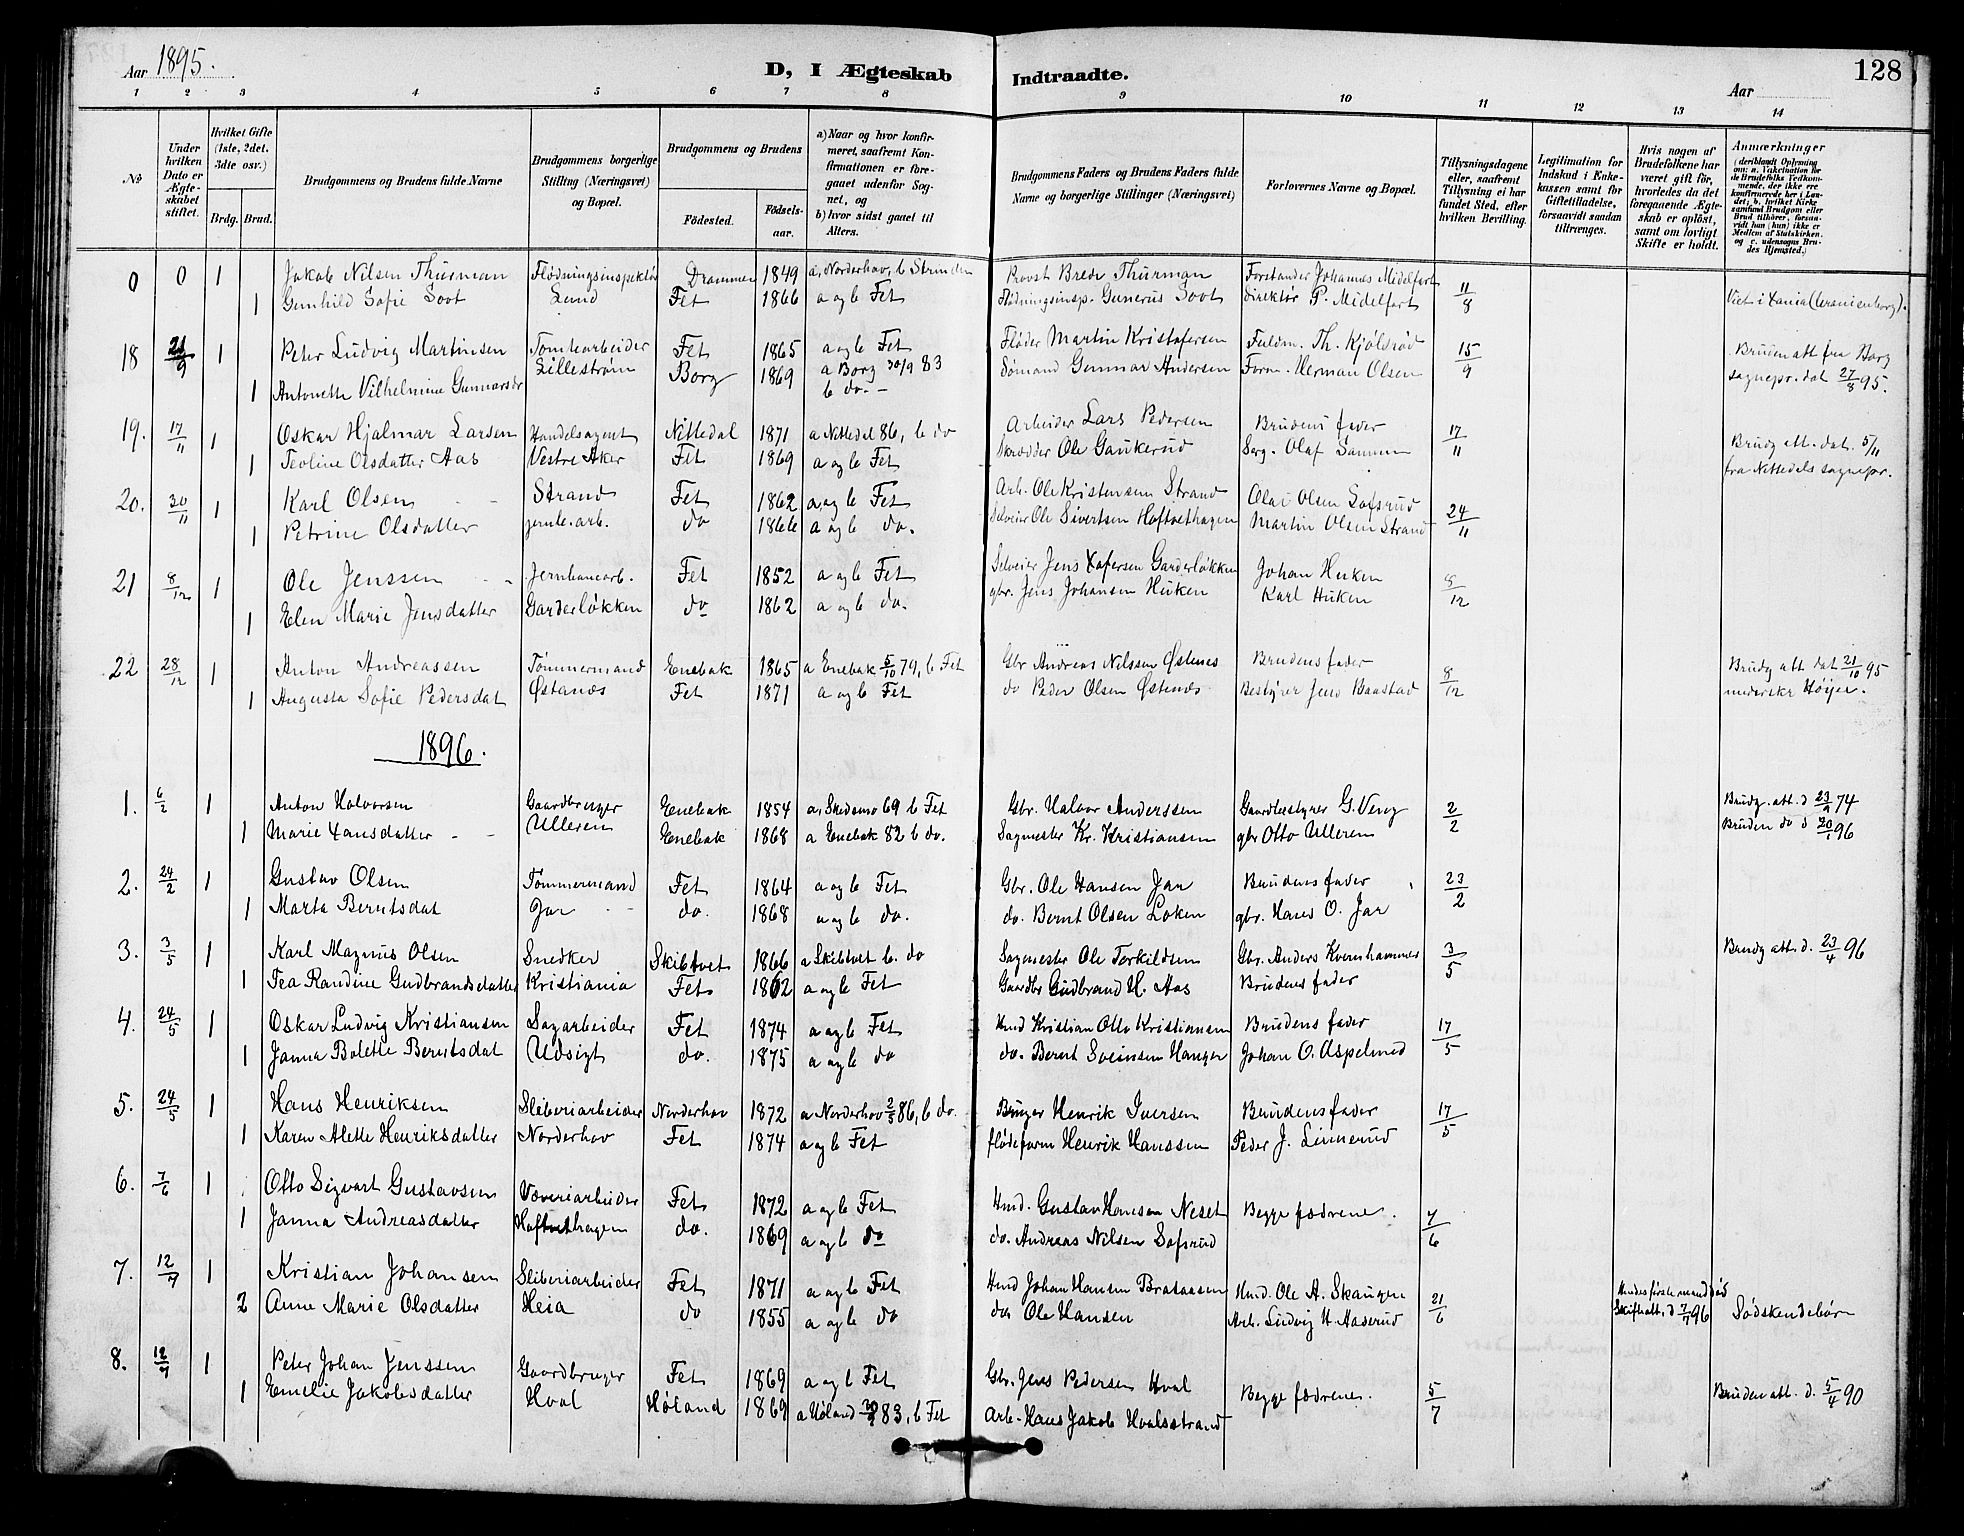 Aar 1895.
D, I Ægteskab Indtraadte.
128
Aar
1 2 3 4 5 6 7 8 9 10 11 12 13 14
No
Under hvilken Dato er Ægteskabet stiftet.
Hvilket Gifte (1ste, 2det, 3dte osv.)
Brdg. Brud.
Brudgommens og Brudens fulde Navne
Brudgommens borgerlige Stilling (Næringsvei) og Bopæl.
Brudgommens og Brudens
Fødested.
Fødsels-aar.
a) Naar og hvor konfirmeret, saafremt Konfirmationen er foregaaet udenfor Sognet, og b) hvor sidst gaaet til Alters.
Brudgommens Faders og Brudens Faders fulde Navne og borgerlige Stillinger (Næringsvei)
Forlovernes Navne og Bopæl.
Tillysningsdagene eller, saafremt Tillysning ei har fundet Sted, efter hvilken Bevilling.
Legitimation for Indskud i Enkekassen samt for Giftetilladelse, forsaavidt saadan tiltrænges.
Hvis nogen af Brudefolkene har været gift før, hvorledes da det foregaaende Ægteskab er opløst, samt om lovligt Skifte er holdt.
Anmærkninger (deriblandt Oplysning om: a. Vakcination for de Brudefolks Vedkommende, der ikke ere konfirmerede her i Landet; b. hvilket Kirkesamfund Brudgom eller Brud tilhører, forsaavidt han (hun) ikke er Medlem af Statskirken, og c. udensogns Brudes Hjemsted.)
0 0 1 Jakob Nilsen Thurman Flødningsinspektør Drammen 1849 a, Norderhov, b Strinden Provst Brede Thurman Forstander Johannes Midelfart 11/8 Viet i Xania (Uranienborg).
1 Gunhild Sofie Soot Lund Fet 1866 a og b Fet Flødningsinsp. Gunerus Soot direktør P. Midelfart
18 21/9 1 Peter Ludvig Martinsen Tomtearbeider Fet 1865 a og b Fet Fløder Martin Kristofersen Fuldm. Th. Kjølsrød 15/9 Bruden att fra Borg
1 Antonette Vilhelmine Gunnarsdr Lillestrøm Borg 1869 a Borg 30/9 83 b do. - Sømand Gunnar Andersen Form. Herman Olsen sognepr. dat 27/8 95.
19. 17/11 1 Oskar Hjalmar Larsen Handelsagent Nittedal 1871 a Nittedal 86, b do Arbeider Lars Pedersen Brudens fader 17/11 Brudg att. dat. 5/11
1 Teoline Olsdatter Aas Vestre Aker Fet 1869 a og b Fet Skrædder Ole Gaukerud Serg. Olaf Sannum fra Nittedals sognepr.
20. 30/11 1 Karl Olsen Strand Fet 1862 a og b Fet Arb. Ole Kristensen Strand Olai Olsen Sofsrud 24/11
1 Petrine Olsdatter jernb. arb. do 1866 a og b do. Selveier Ole Sivertsen Hoftvethagen Martin Olsen Strand
21 8/12 1 Ole Jenssen Jernbanearb. Fet 1852 a og b Fet Selveier Jens Xofersen Garderløkken Johan Huken 8/12
1 Elen Marie Jensdatter Garderløkken do 1862 a og b do. gbr. Jens Johansen Huken Karl Huken
22 28/12 1 Anton Andreassen Tømmermand Enebak 1865 a Enebak 5/10 79, b Fet Gbr Andreas Nilssen Østenes Brudens fader 8/12 Brudg att dat 21/10 95
1 Augusta Sofie Pedersdat Østanes Fet 1871 a og b Fet do Peder Olsen Østenes Bestyrer Jens Baastad underskr Høyer.
1896.
1. 6/2 1 Anton Halvorsen Gaardbruger Enebak 1854 a, Skedsmo 69 b Fet Gbr. Halvor Anderssen Gaardbestyrer G. Veng 2/2 Brudg. att. d 23/9 74
1 Marie Hansdatter Ulleren Enebak 1868 a Enebak 82 b do. Sagmester Kr. Kristiansen gbr Otto Ulleren Bruden do d 20/1 96
2. 24/2 1 Gustav Olsen Tømmermand Fet 1864 a og b Fet Gbr. Ole Hansen Jar Brudens fader 23/2
1 Marta Berntsdat Jar do. 1868 a og b do. do. Bernt Olsen Løken gbr. Hans O. Jar
3. 3/5 1 Karl Magnus Olsen Snedker Skibtvet 1866 a Skibtvet b. do Sagmester Ole Torkildsen Gbr. Anders Kvernhammer 3/5 Brudg att. d. 23/4 96
1 Tea Randine Gudbrandsdatter Kristiania Fet 1862 a og b Fet Gaardbr Gudbrand H. Aas Brudens fader
4. 24/5 1 Oskar Ludvig Kristiansen Sagarbeider Fet 1874 a og b Fet Hmd Kristian Otto Kristiansen Brudens fader 17/5
1 Janna Bolette Berntsdat Udsigt do. 1875 a og b do do. Bernt Svensen Hanger Johan O. Aspelund
5. 24/5 1 Hans Henriksen Sliberiarbeider Norderhov 1872 a Norderhov 2/5 86, b do. Bruger Henrik Iversen Brudens fader 17/5
1 Karen Alette Henriksdatter Norderhov Fet 1874 a og b Fet flødeform Henrik Hanssen Peder J. Linnerud
6. 7/6 1 Otto Sigvart Gustavsen Væveriarbeider Fet 1872 a og b Fet Hmd. Gustav Hansen Neset Begge fædrene. 7/6
1 Janna Andreasdatter Hoftvethagen do. 1869 a og b do do. Andreas Nilsen Sofsrud
7. 12/7 1 Kristian Johansen Sliberiarbeider Fet 1871 a og b Fet Hmd Johan Hansen Brataasen Hmd. Ole A. Skaugen 21/6 Hendes første mand død
2 Anne Marie Olsdatter Heia do 1855 a og b do do Ole Hansen Arb. Ludvig H. Aaserud Skifteatt. d 7/7 96 Sødskendebørn
8. 12/7 1 Peter Johan Jenssen Gaardbruger Fet 1869 a og b Fet Gbr. Jens Pedersen Hval Begge fædrene. 5/7 Bruden att. d. 5/4 90
1 Emelie Jakobsdatter Hval Høland 1869 a Høland 30/9 83, b Fet Arb. Hans Jakob Hvalsstrand